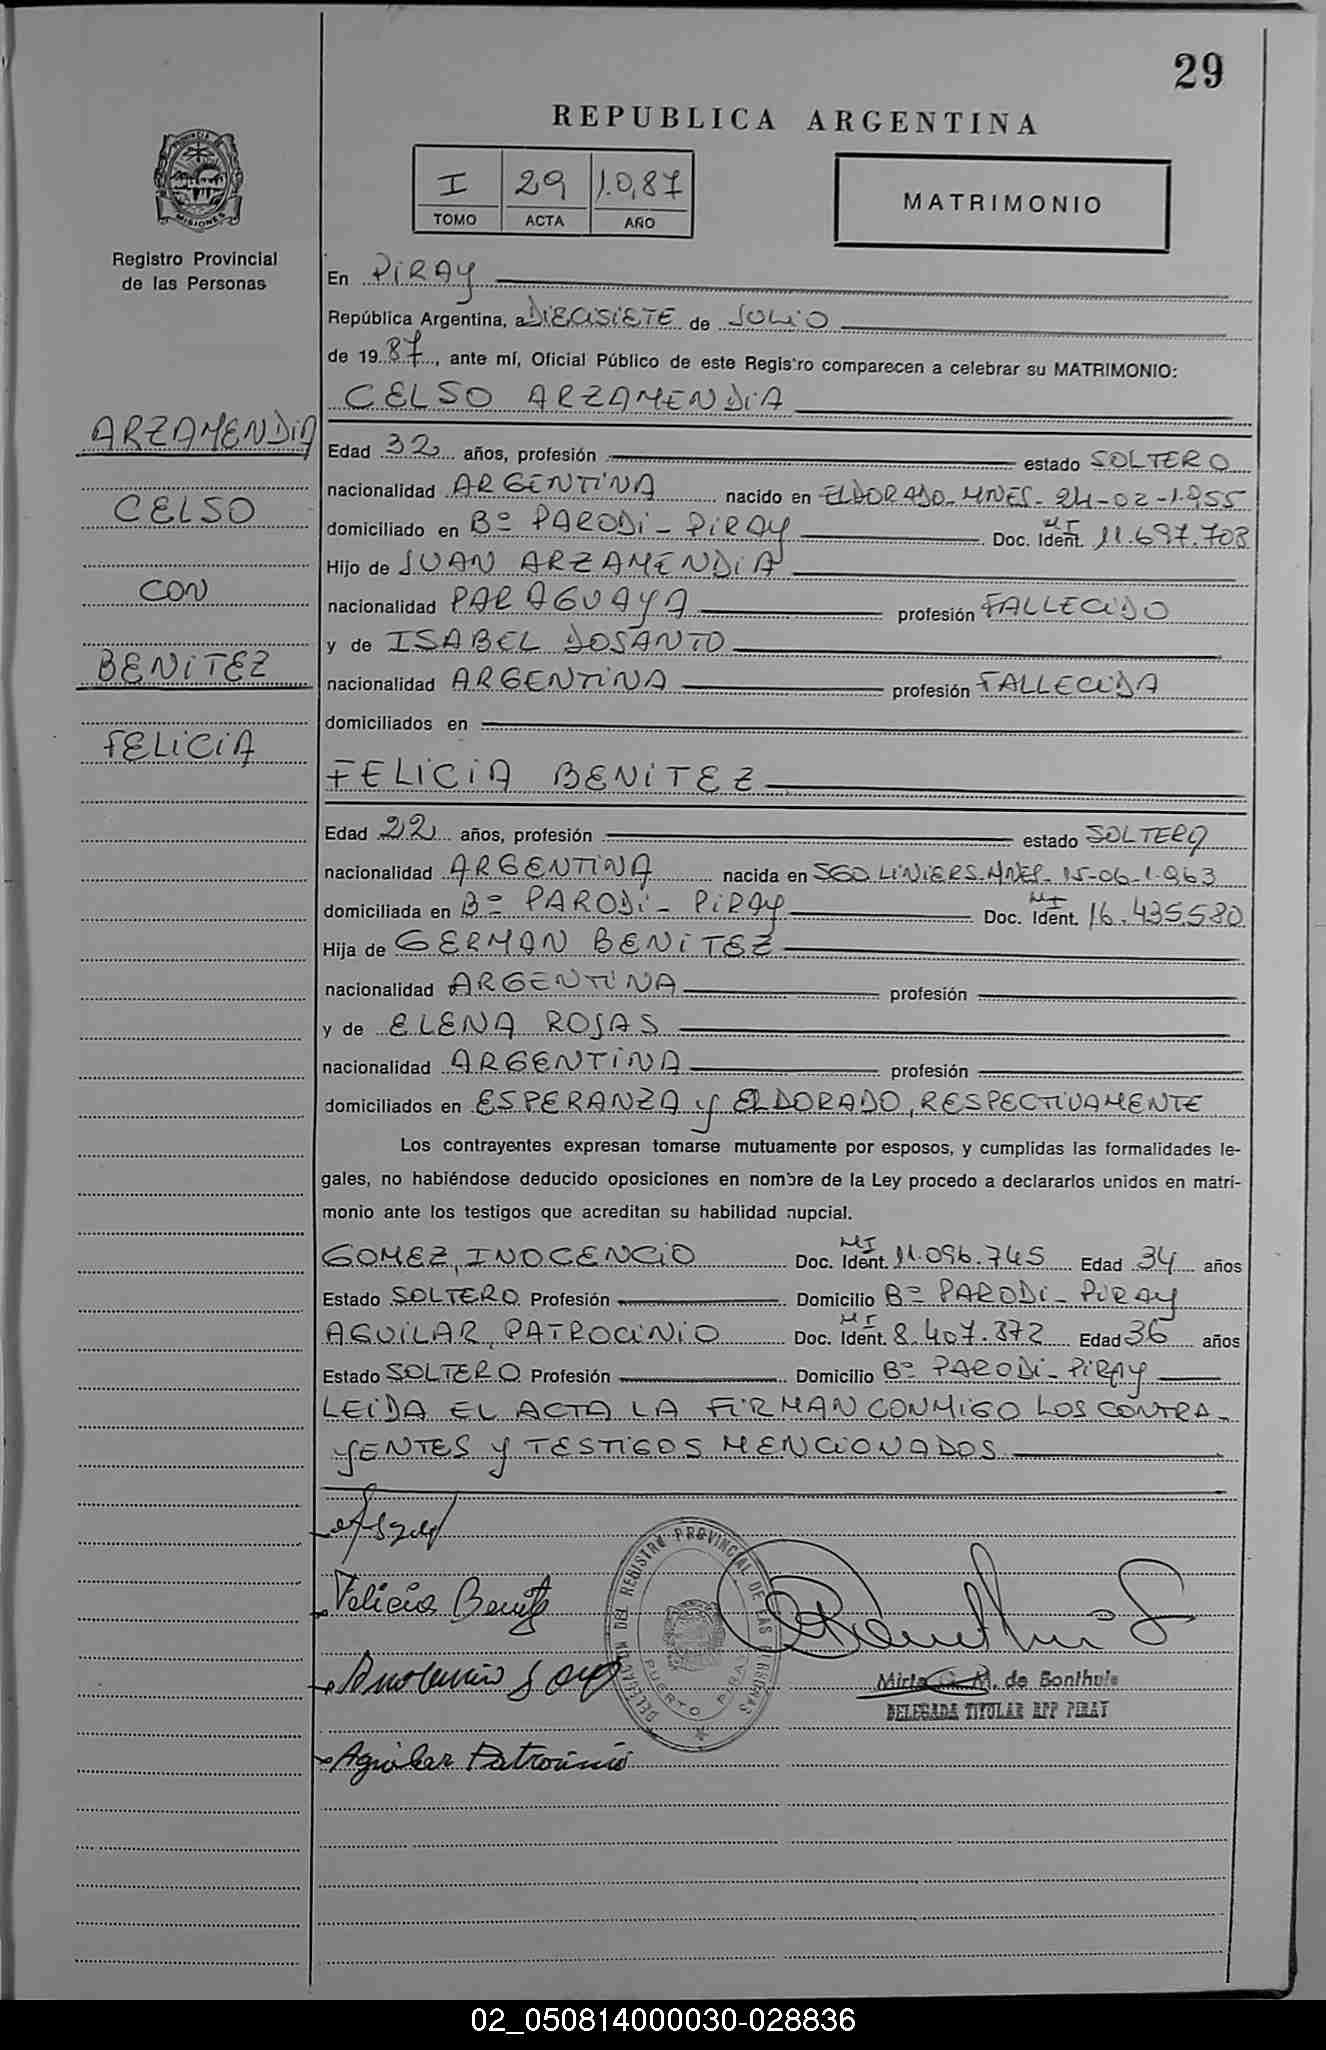 29
REPUBLICA ARGENTINA
I 29 1.0,87
TOMO ACTA AÑO
MATRIMONIO
PROVINCIA DE MISIONES
Registro Provincial
de las Personas
En PIRAY
República Argentina, a DIECISIETE de JULIO
de 1987, ante mí, Oficial Público de este Registro comparecen a celebrar su MATRIMONIO:
CELSO ARZAMENDIA
ARZAMENDIA
CELSO
CON
BENITEZ
FELICIA
Edad 32 años, profesión estado SOLTERO
nacionalidad ARGENTINA nacido en ELDORADO-MNES- 24-02-1.955
domiciliado en Bº PARODI - PIRAY Doc. Ident. MI 11.697.703
Hijo de JUAN ARZAMENDIA
nacionalidad PARAGUAYA profesión FALLECIDO
y de ISABEL DOSANTO
nacionalidad ARGENTINA profesión FALLECIDA
domiciliados en
FELICIA BENITEZ
Edad 22 años, profesión estado SOLTERA
nacionalidad ARGENTINA nacida en SGO LINIERS.MNES- 15-06-1.963
domiciliada en Bº PARODI - PIRAY Doc. Ident. MI 16.435.580
Hija de GERMAN BENITEZ
nacionalidad ARGENTINA profesión
y de ELENA ROJAS
nacionalidad ARGENTINA profesión
domiciliados en ESPERANZA Y ELDORADO, RESPECTIVAMENTE
Los contrayentes expresan tomarse mutuamente por esposos, y cumplidas las formalidades le-
gales, no habiéndose deducido oposiciones en nombre de la Ley procedo a declararlos unidos en matri-
monio ante los testigos que acreditan su habilidad nupcial.
GOMEZ, INOCENCIO Doc. Ident. MI 11.096.745 Edad 34 años
Estado SOLTERO Profesión Domicilio Bº PARODI - PIRAY
AGUILAR, PATROCINIO Doc. Ident. MI 8.407.372 Edad 36 años
Estado SOLTERO Profesión Domicilio Bº PARODI - PIRAY
LEIDA EL ACTA LA FIRMAN CONMIGO LOS CONTRA-
YENTES Y TESTIGOS MENCIONADOS
Felicia Benitz
DELEGACION DEL REGISTRO PROVINCIAL DE LAS PERSONAS
PUERTO PIRAY
Mirta G. M. de Bonthuis
DELEGADA TITULAR RPP PIRAY
Aguilar Patrocinio
02_050814000030-028836